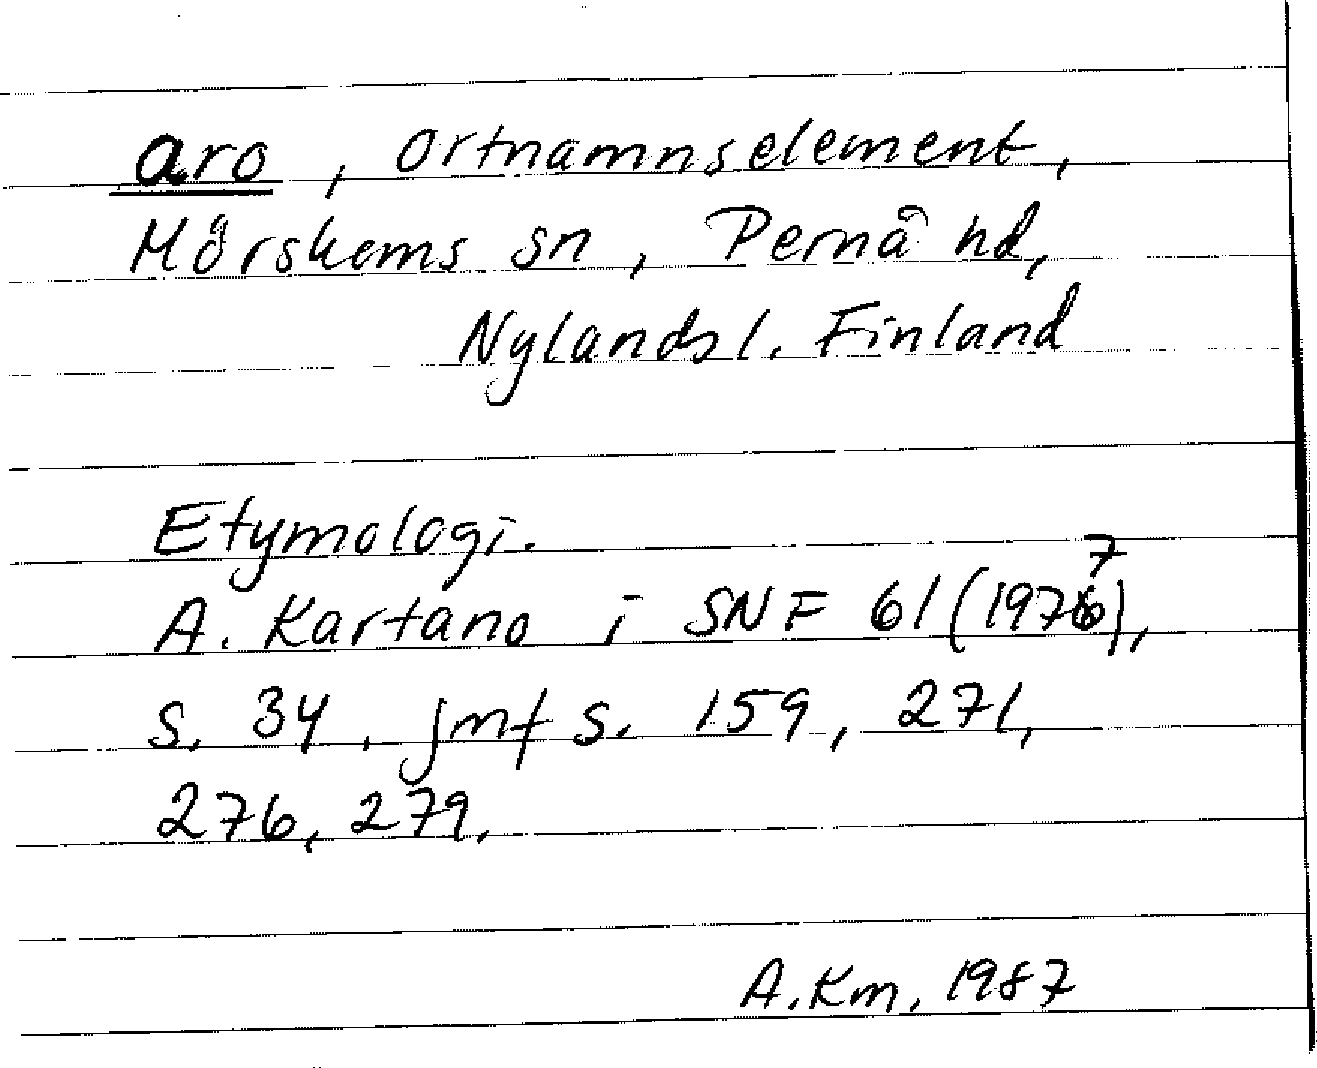 aro, ortnamnselement,
Mörskoms sn, Pernå hd,
Nylands l. Finland
Etymologi.
A. Kartano i SNF 61 (1977),
s. 34, jmf s. 159, 271,
276, 279.
A.Km. 1987